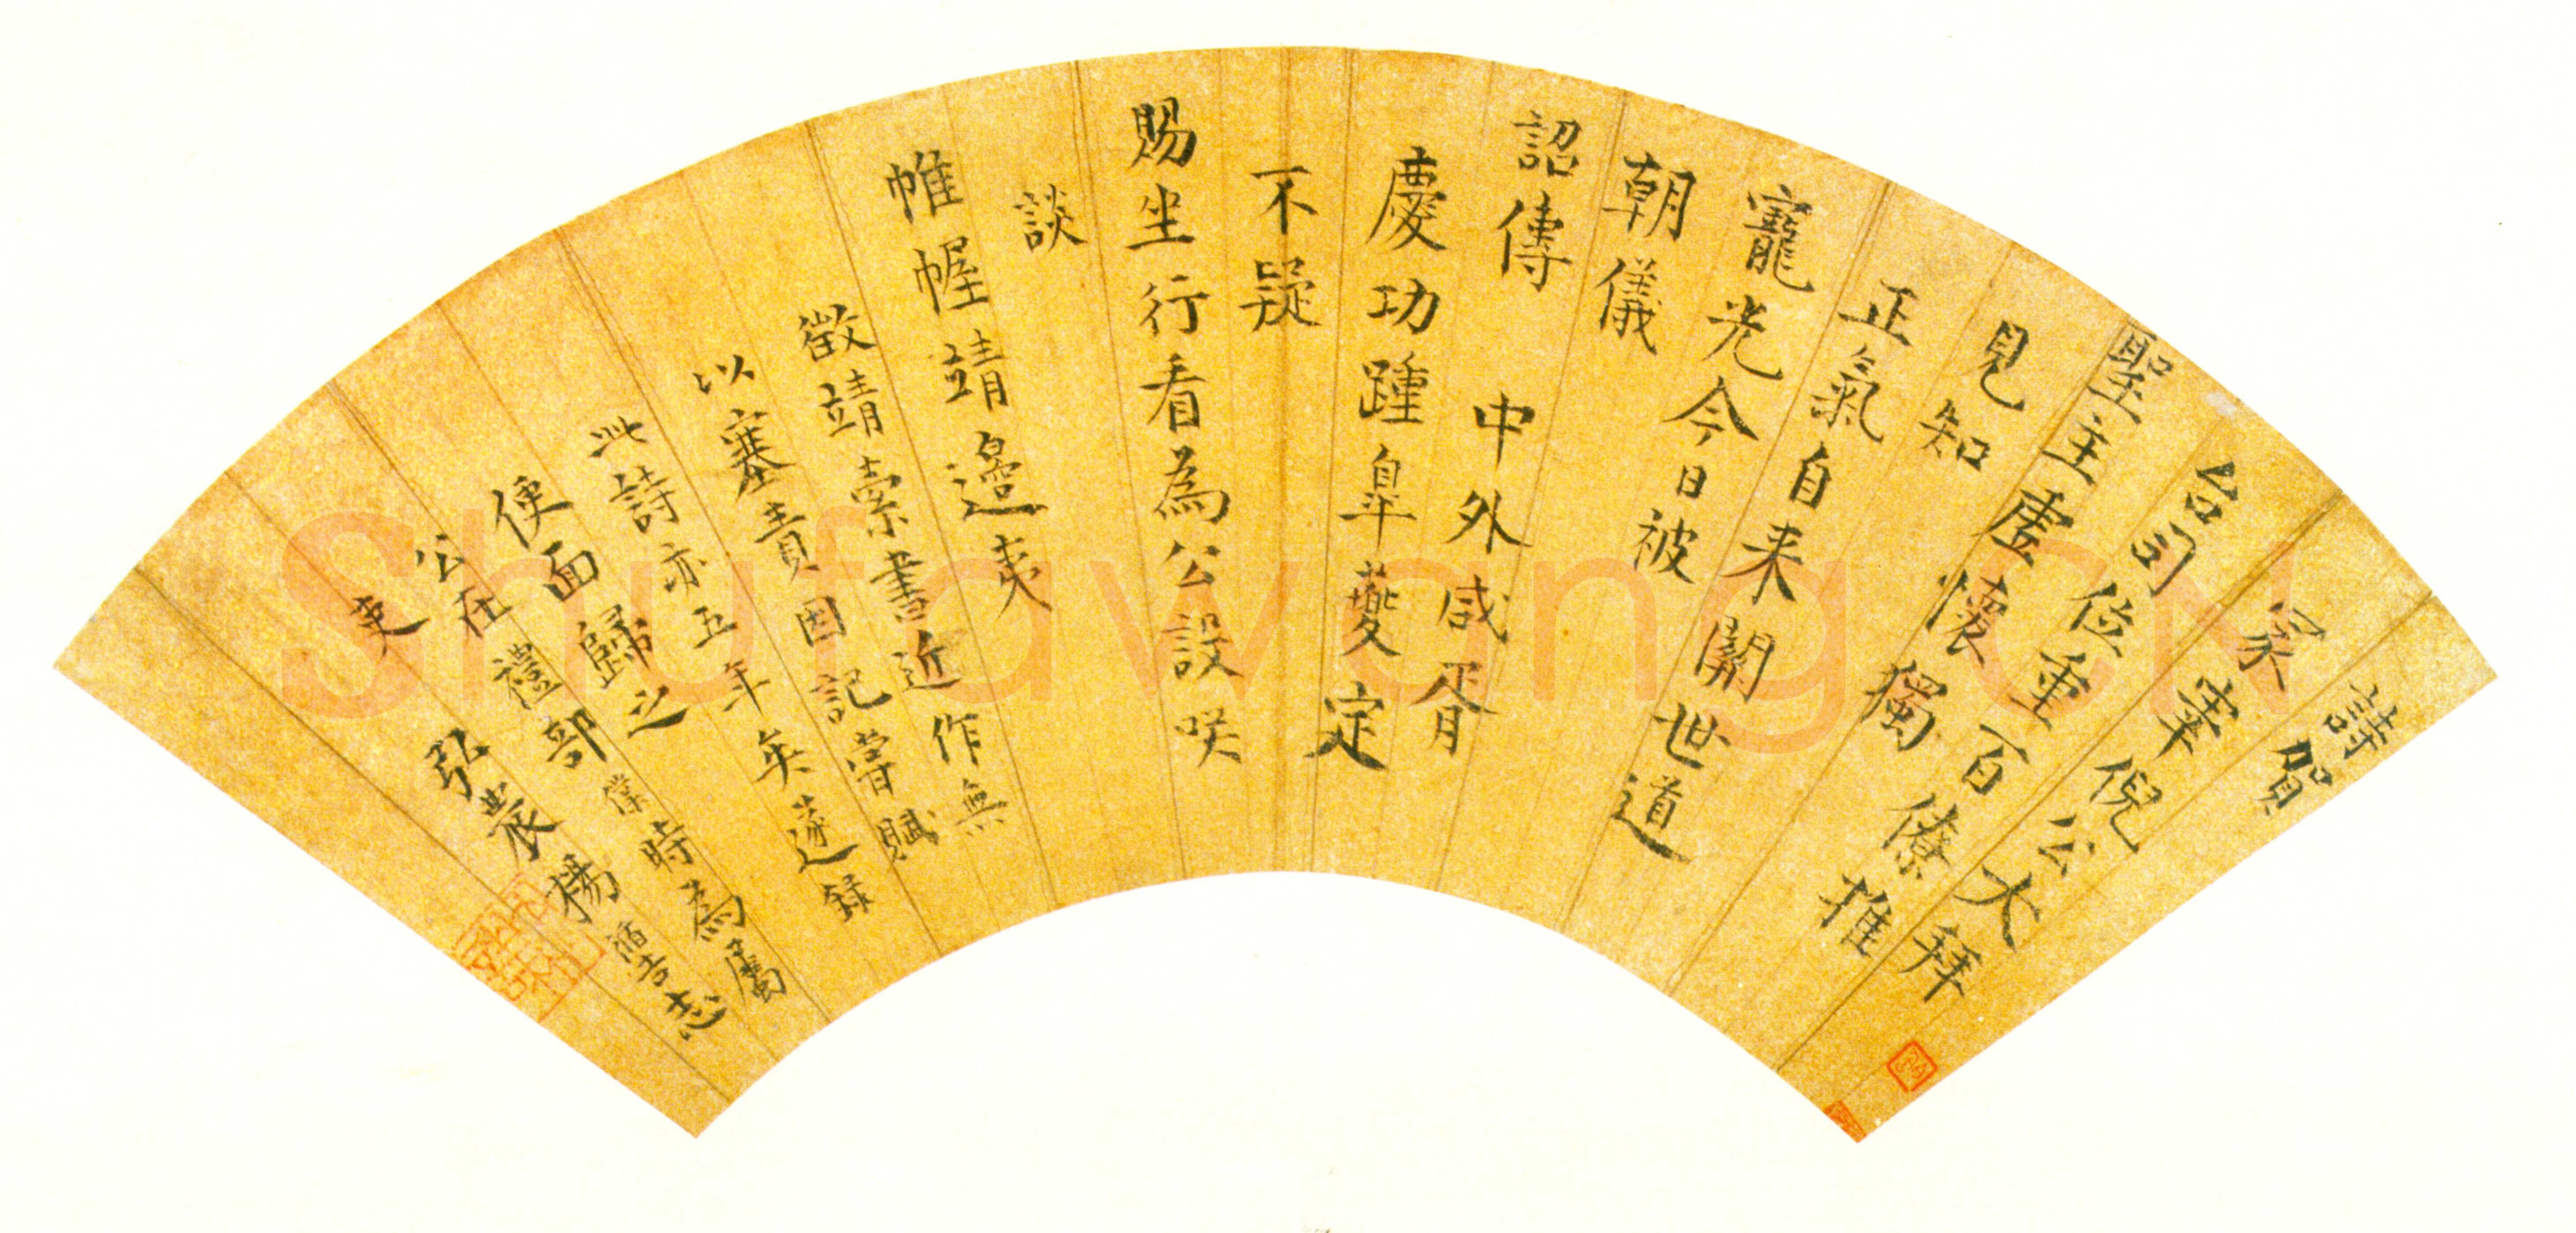 詩賀
冢宰倪公大拜
台司位重百僚推
聖主虛懷獨
見知
正氣自来關世道
寵光今日被
朝儀
詔傳中外咸胥
慶功踵皐夔定
不疑
賜坐行看為公設咲
談
帷幄靖邊夷
徵靖索書近作無
以塞責因記嘗賦
此詩亦五年矣遂録
便面歸之
公在禮部僕時為屬
吏
弘農楊循吉志
Shufawang.CN